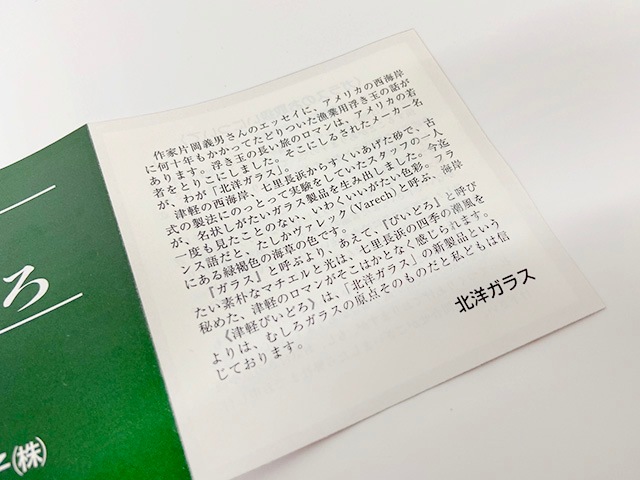 作家片岡義男さんのエッセイに、アメリカの西海岸
に何十年もかかってたどりついた漁業用浮き玉の話が
あります。浮き玉の長い旅のロマンは、アメリカの若
者をとりこにしました。そこにしるされたメーカー名
が、わが『北洋ガラス』。
津軽の西海岸、七里長浜からすくいあげた砂で、古
式の製法にのっとって実験をしていたスタッフの一人
が、名状しがたいガラス製品を生み出しました。今迄
一度も見たことのない、いわくいいがたい色彩。フラ
ンス語だと、たしかヴァレック(Varech)と呼ぶ、海岸
にある緑褐色の海草の色です。
『ガラス』と呼ぶより、あえて、『びいどろ』と呼び
たい素朴なマチエルと光は、七里長浜の四季の潮風を
秘めた、津軽のロマンがそこはかとなく感じられます。
《津軽びいどろ》は、「北洋ガラス」の新製品という
よりは、むしろガラスの原点そのものだと私どもは信
じております。
北洋ガラス
ろ
(株)